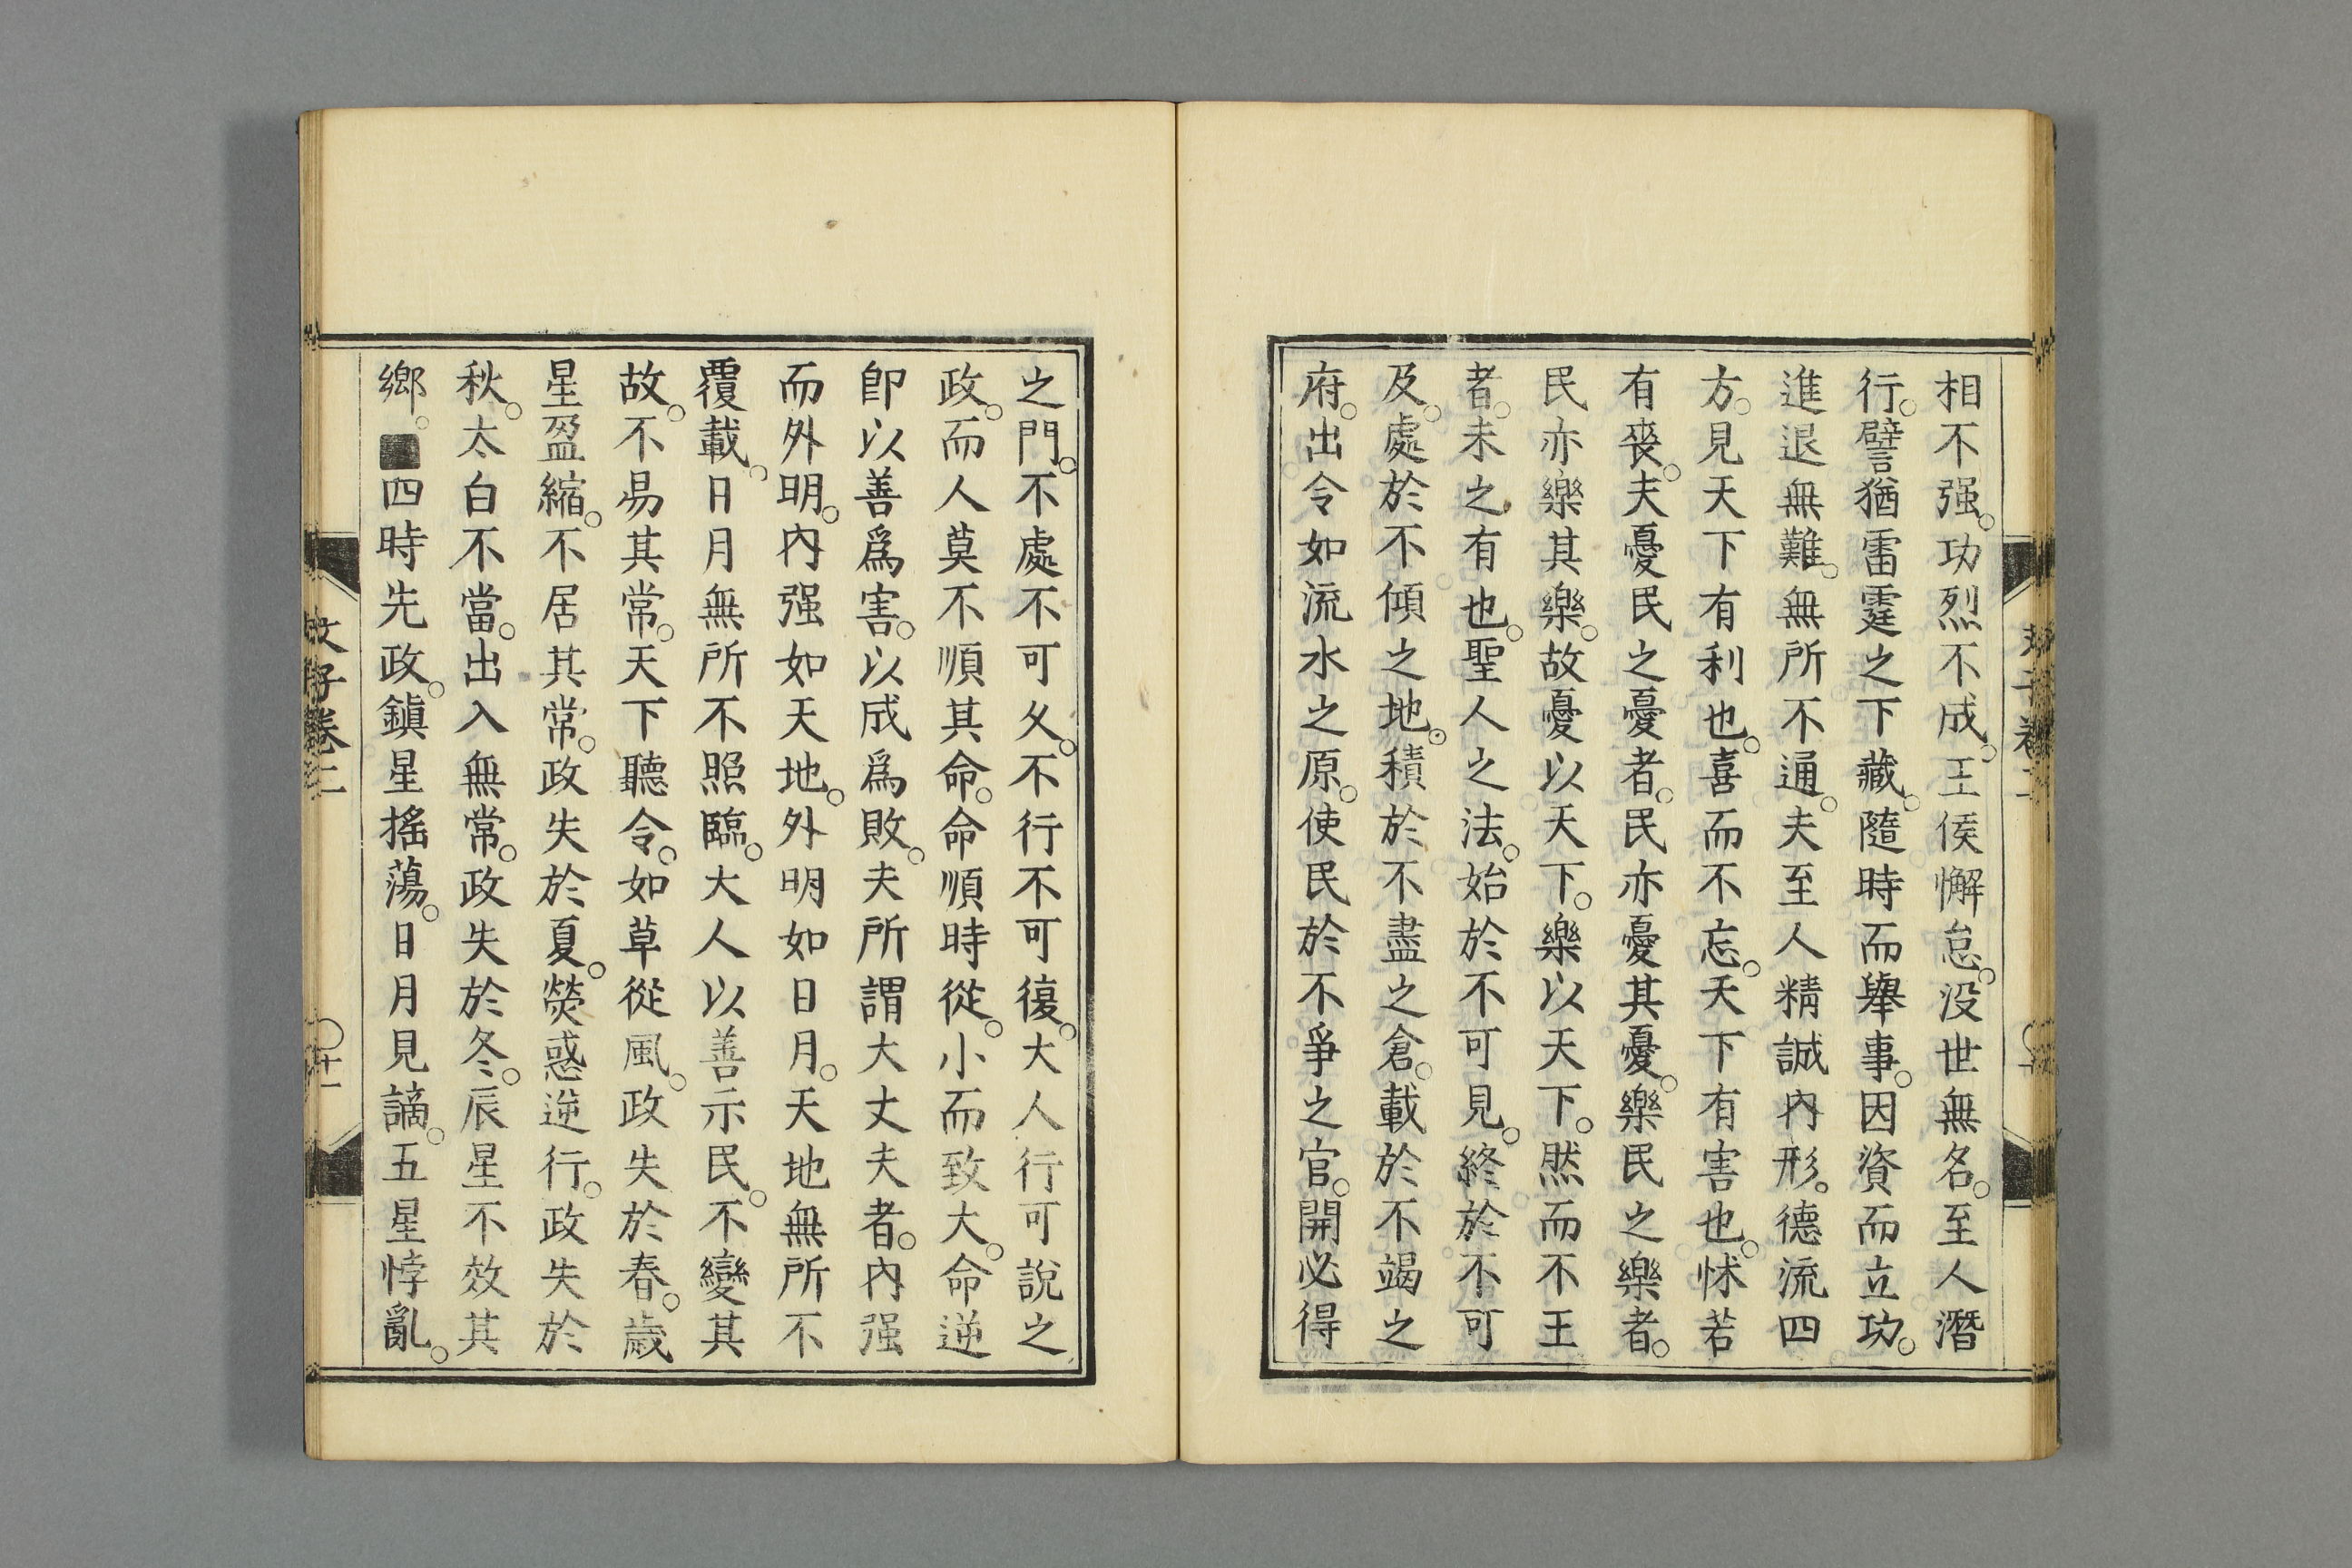 相不强。功烈不成。王侯懈怠。没世無名。至人潛
行。譬猶雷霆之下藏。隨時而舉事。因資而立功。
進退無難。無所不通。夫至人精誠內形。德流四
方。見天下有利也。喜而不忘。天下有害也。怵若
有喪。夫憂民之憂者。民亦憂其憂。樂民之樂者。
民亦樂其樂。故憂以天下。樂以天下。然而不王
者。未之有也。聖人之法。始於不可見。終於不可
及。處於不傾之地。積於不盡之倉。載於不竭之
府。出令如流水之原。使民於不爭之官。開必得
之門。不處不可久。不行不可復。大人行可說之
政。而人莫不順其命。命順時從。小而致大。命逆
卽以善爲害。以成爲敗。夫所謂大丈夫者。內强
而外明。內强如天地。外明如日月。天地無所不
覆載。日月無所不照臨。大人以善示民。不變其
故。不易其常。天下聽令。如草從風。政失於春。歲
星盈縮。不居其常。政失於夏。熒惑逆行。政失於
秋。太白不當。出入無常。政失於冬。辰星不效其
鄉。■四時先政。鎮星搖蕩。日月見謫。五星悖亂。
文子卷二
十一